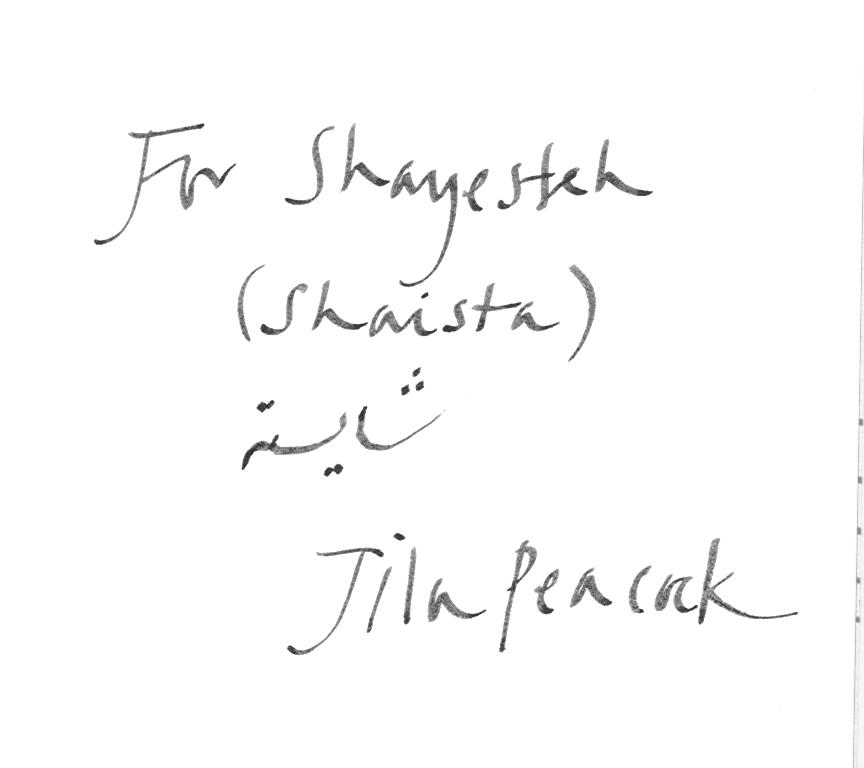 For Shayesteh
(Shaista)
شایسته
Jila Peacock